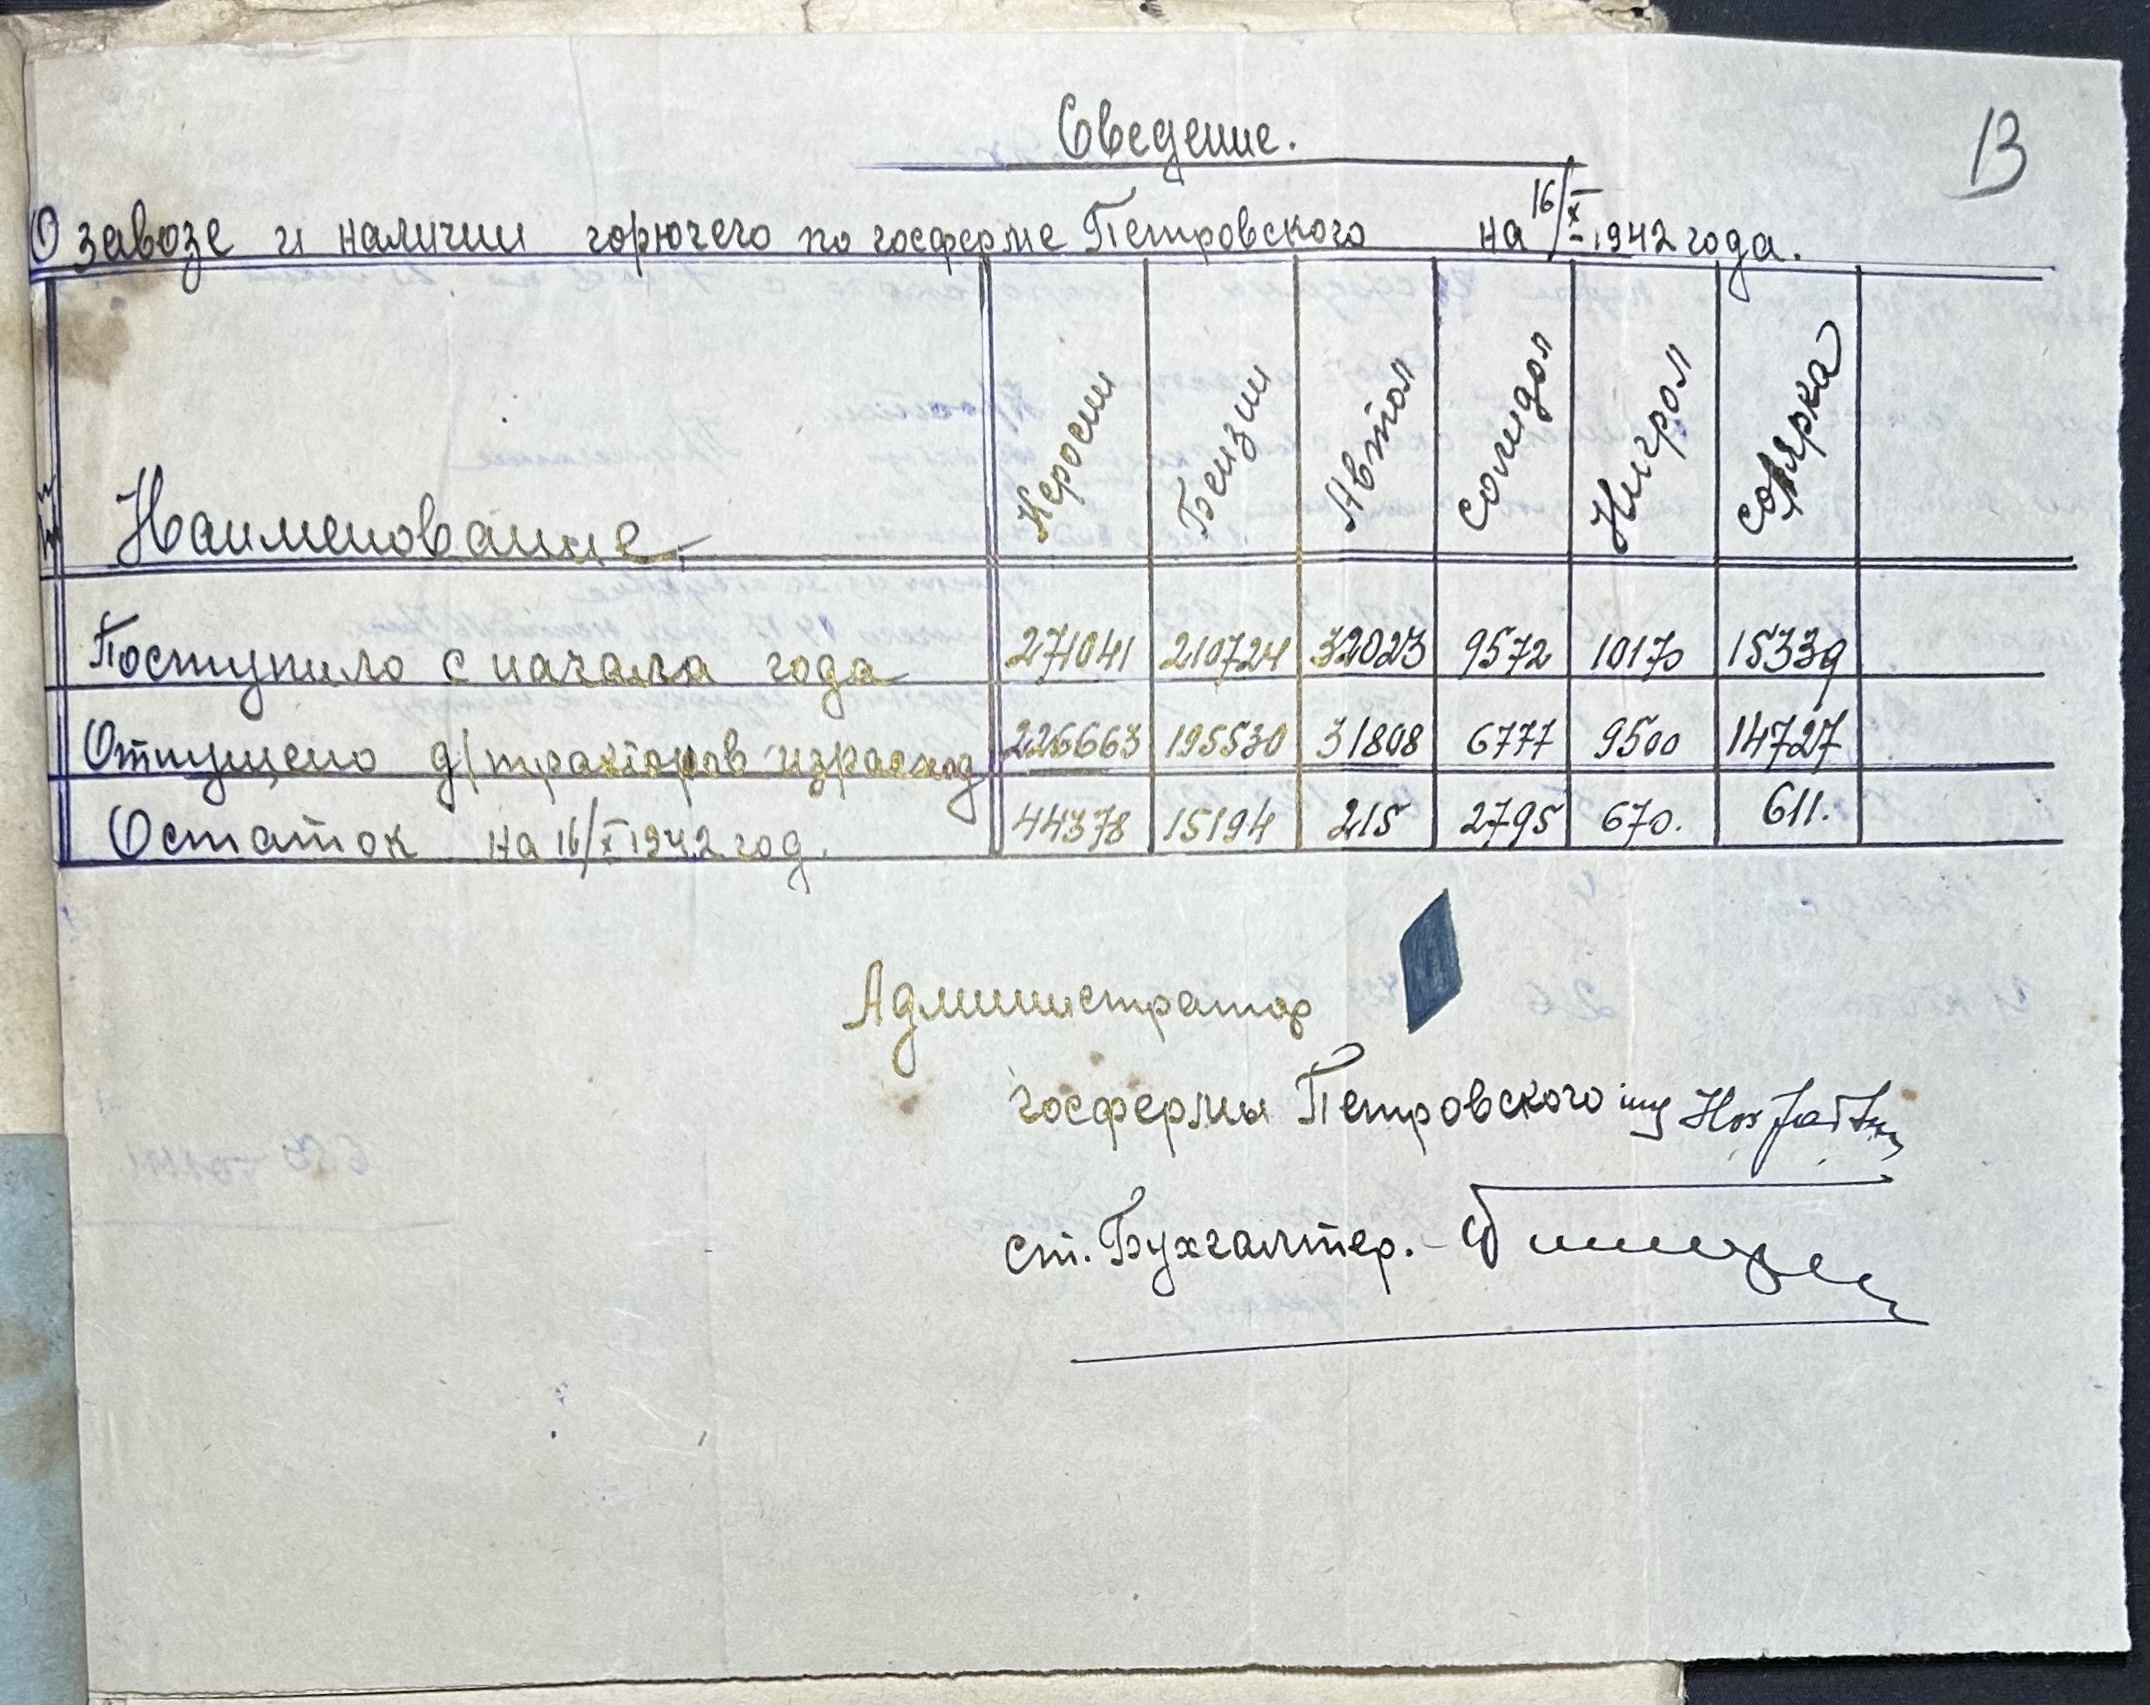 13
Сведение.
О завозе и наличии горючего по госферме Петровского на 16/X 1942 года.
Наименование Керосин Бензин Автол Солидол Нигрол Солярка
Поступило с начала года 271041 210724 32023 9572 10170 15339
Отпущено д/тракторов израсход 226663 195530 31808 6777 9500 14727
Остаток на 16/X 1942 год. 44378 15194 215 2795 670. 611.
Администратор
госфермы Петровского
ст. Бухгалтер.